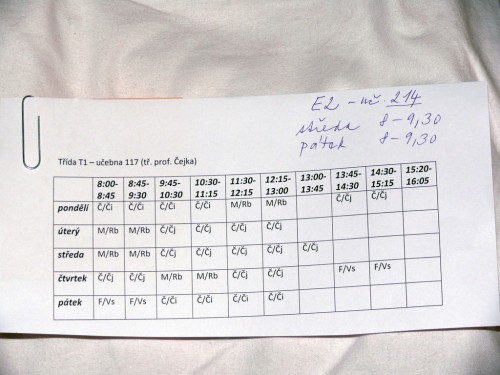 E2 - uč. 214
středa 8-9,30
pátek 8-9,30
Třída T1 – učebna 117 (tř. prof. Čejka)
8:00-8:45 8:45-9:30 9:45-10:30 10:30-11:15 11:30-12:15 12:15-13:00 13:00-13:45 13:45-14:30 14:30-15:15 15:20-16:05
pondělí Č/Či Č/Či Č/Či Č/Či M/Rb M/Rb Č/Či Č/Či
úterý M/Rb M/Rb Č/Či Č/Či Č/Čj Č/Čj
středa M/Rb M/Rb Č/Čj Č/Čj Č/Čj Č/Čj Č/Čj
čtvrtek Č/Čj Č/Čj M/Rb M/Rb Č/Čj Č/Čj F/Vs F/Vs
pátek F/Vs F/Vs Č/Či Č/Či Č/Či Č/Či